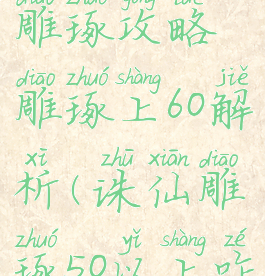 diāo zhuó gōng lüè
雕琢攻略
diāo zhuó shàng jiě
雕琢上60解
xī zhū xiān diāo
析(诛仙雕
zhuó yǐ shàng zé
琢50以上咋